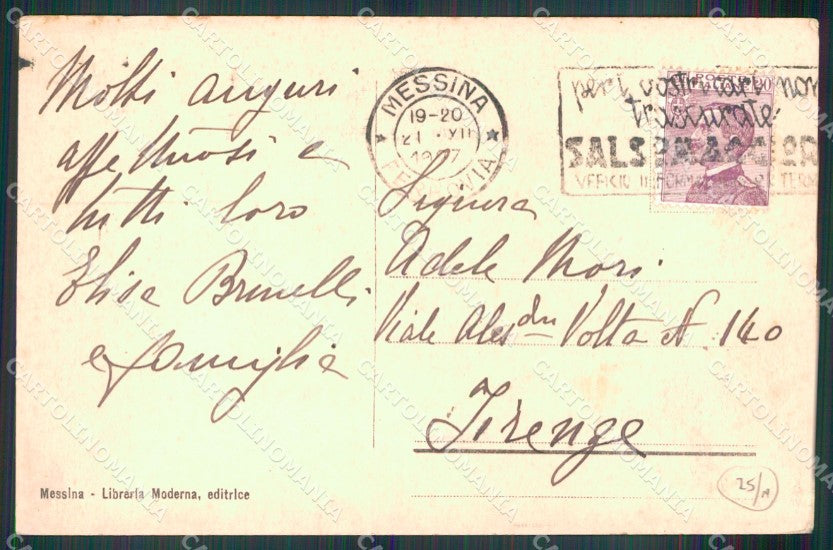 Molti auguri
affettuosi a
tutti loro
Elisa Brunelli
e famiglia
MESSINA
19-20
21 VII
FERROVIA
per i vostri cari non
trascurate
SALSOMAGGIOR
VFFICIO INFORM
POSTE
Signora
Adele Mori
Viale Alesdro Volta N. 140
Firenze
Messina - Libreria Moderna, editrice
25/A
CARTOLINOMANIA